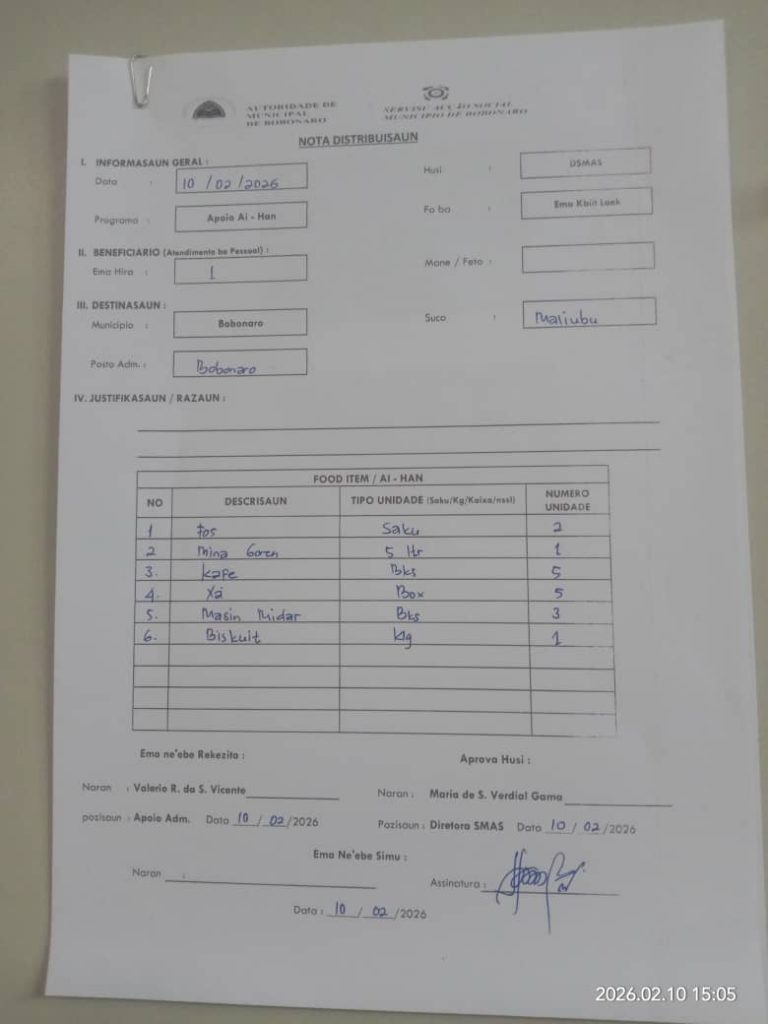 AUTORIDADE DE
MUNICIPAL
DE BOBONARO
SERVISU ACÇÃO SOCIAL
MUNICIPIO DE BOBONARO
NOTA DISTRIBUISAUN
I. INFORMASAUN GERAL :
Data : 10 / 02 / 2026
Husi : DSMAS
Programa : Apoio Ai - Han
Fo ba : Ema Kbiit Laek
II. BENEFICIARIO (Atendimento ba Pessoal) :
Ema Hira : 1
Mane / Feto :
III. DESTINASAUN :
Municipio : Bobonaro
Suco : Maliubu
Posto Adm. : Bobonaro
IV. JUSTIFIKASAUN / RAZAUN :
FOOD ITEM / AI - HAN
NO DESCRISAUN TIPO UNIDADE (Saku/Kg/Kaixa/nssl) NUMERO UNIDADE
1 Fos Saku 2
2 Mina Goren 5 ltr 1
3. Kape Bks 5
4. Xá Box 5
5. Masin Midar Bks 3
6. Biskuit Kg 1
Ema ne'ebe Rekezita :
Aprova Husi :
Naran : Valerio R. da S. Vicente
Naran : Maria de S. Verdial Gama
pozisaun : Apoio Adm. Data 10 / 02 /2026
Pozisaun : Diretora SMAS Data 10 / 02 /2026
Ema Ne'ebe Simu :
Naran
Assinatura :
Data : 10 / 02 /2026
2026.02.10 15:05